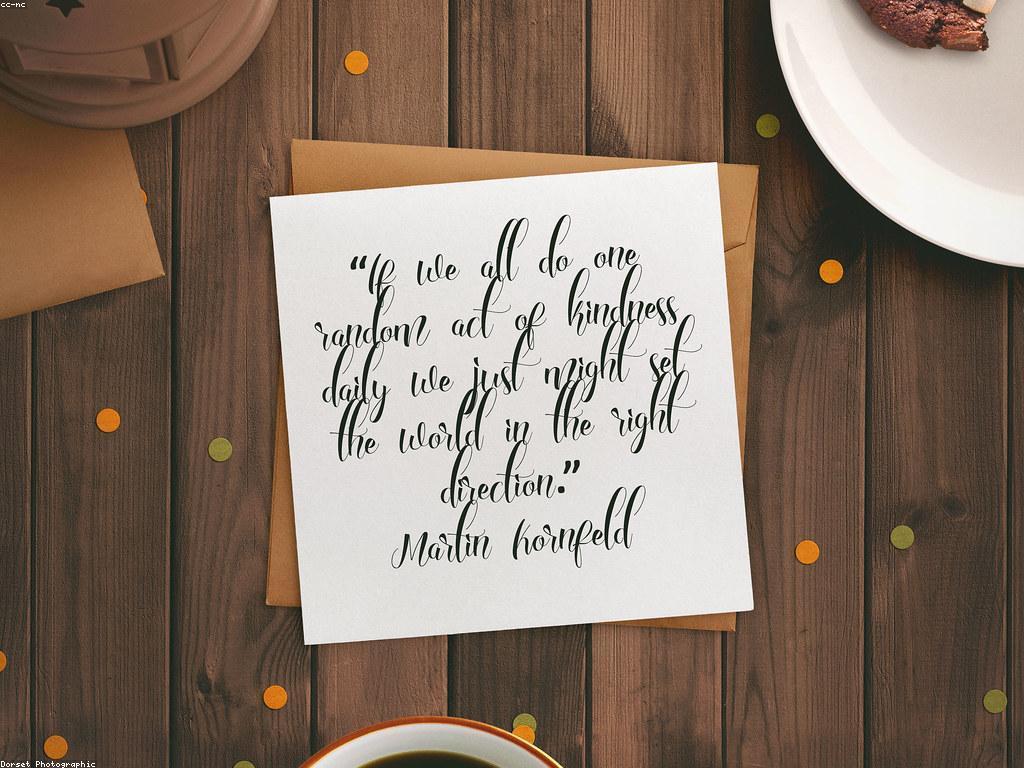 cc-nc
“If we all do one
random act of kindness
daily we just might set
the world in the right
direction.”
Martin Kornfeld
Dorset Photographic